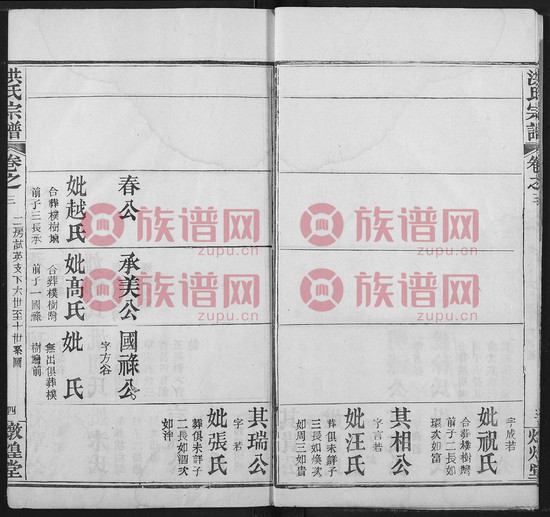 洪氏宗譜
卷之三
字成若
妣祝氏
合葬樸樹灣
前子二長如
環次如富
其相公
字言若
妣汪氏
葬俱未詳子
三長如煥次
如周三如貴
其瑞公
字 若
妣張氏
葬俱未詳子
二長如
如泮
春公
妣越氏
合葬樸樹塆
前子三長承
承美公
妣高氏
合葬樸樹灣
前子一國祿
國祿公
字方谷
妣 氏
無出俱葬樸
樹塆前
洪氏宗譜
卷之三
二房試英支下六世至十世系圖
四
敦煌堂
族谱网
zupu.cn
族谱网
zupu.cn
族谱网
zupu.cn
族谱网
zupu.cn